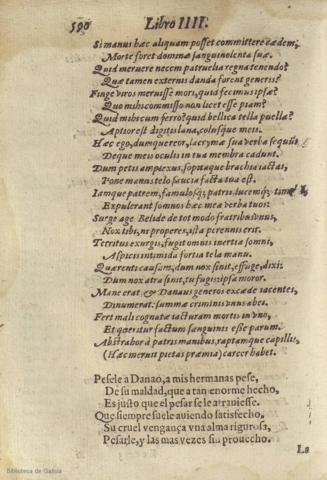 590 Libro IIII.
Si manus hæc aliquam posset committere cædem,
Morte foret dominæ sanguinolenta suæ.
Quid meruere necem patruelia regna tenendo?
Quæ tamen externis danda forent generis?
Finge viros meruisse mori, quid fecimus ipsæ?
Quo mihi commisso non licet esse piam?
Quid mihi cum ferro? quid bellica tella puellæ?
Aptior est digitis lana, colusque meis.
Hæc ego, dumqueror, lacrymæ sua verba sequũt
Deque meis oculis in tua membra cadunt.
Dum petis amplexus, sopitaque brachia iactas,
Pone manus telo saucia facta tua est.
Iamque patrem, famulosq; patris, lucemq; time
Expulerant somnos hæc mea verba tuos:
Surge age Belide de tot modo fratribus vnus,
Nox tibi, ni properes, ista perennis erit.
Territus exurgis, fugit omnis inertia somni,
Aspicis in timida fortia tela manu.
Quærenti causam, dum nox sinit, effuge, dixi:
Dum nox atra sinit, tu fugis: ipsa moror.
Mane erat, & Danaus generos ex cæde iacentes,
Dinumerat: summæ criminis vnus abes.
Fert malè cognatæ iacturam mortis in vno,
Et queritur factum sanguinis esse parum.
Abstrahor à patris manibus, raptamque capillis,
(Hæc meruit pietas præmia) carcer habet.
Pesele a Danao, a mis hermanas pese,
De su maldad, que a tan enorme hecho,
Es justo que el pesar se le atrauiesse.
Que siempre suele auiendo satisfecho,
Su cruel vengança vna alma rigurosa,
Pesarle, y las mas vezes sin prouecho.
La
Biblioteca de Galicia